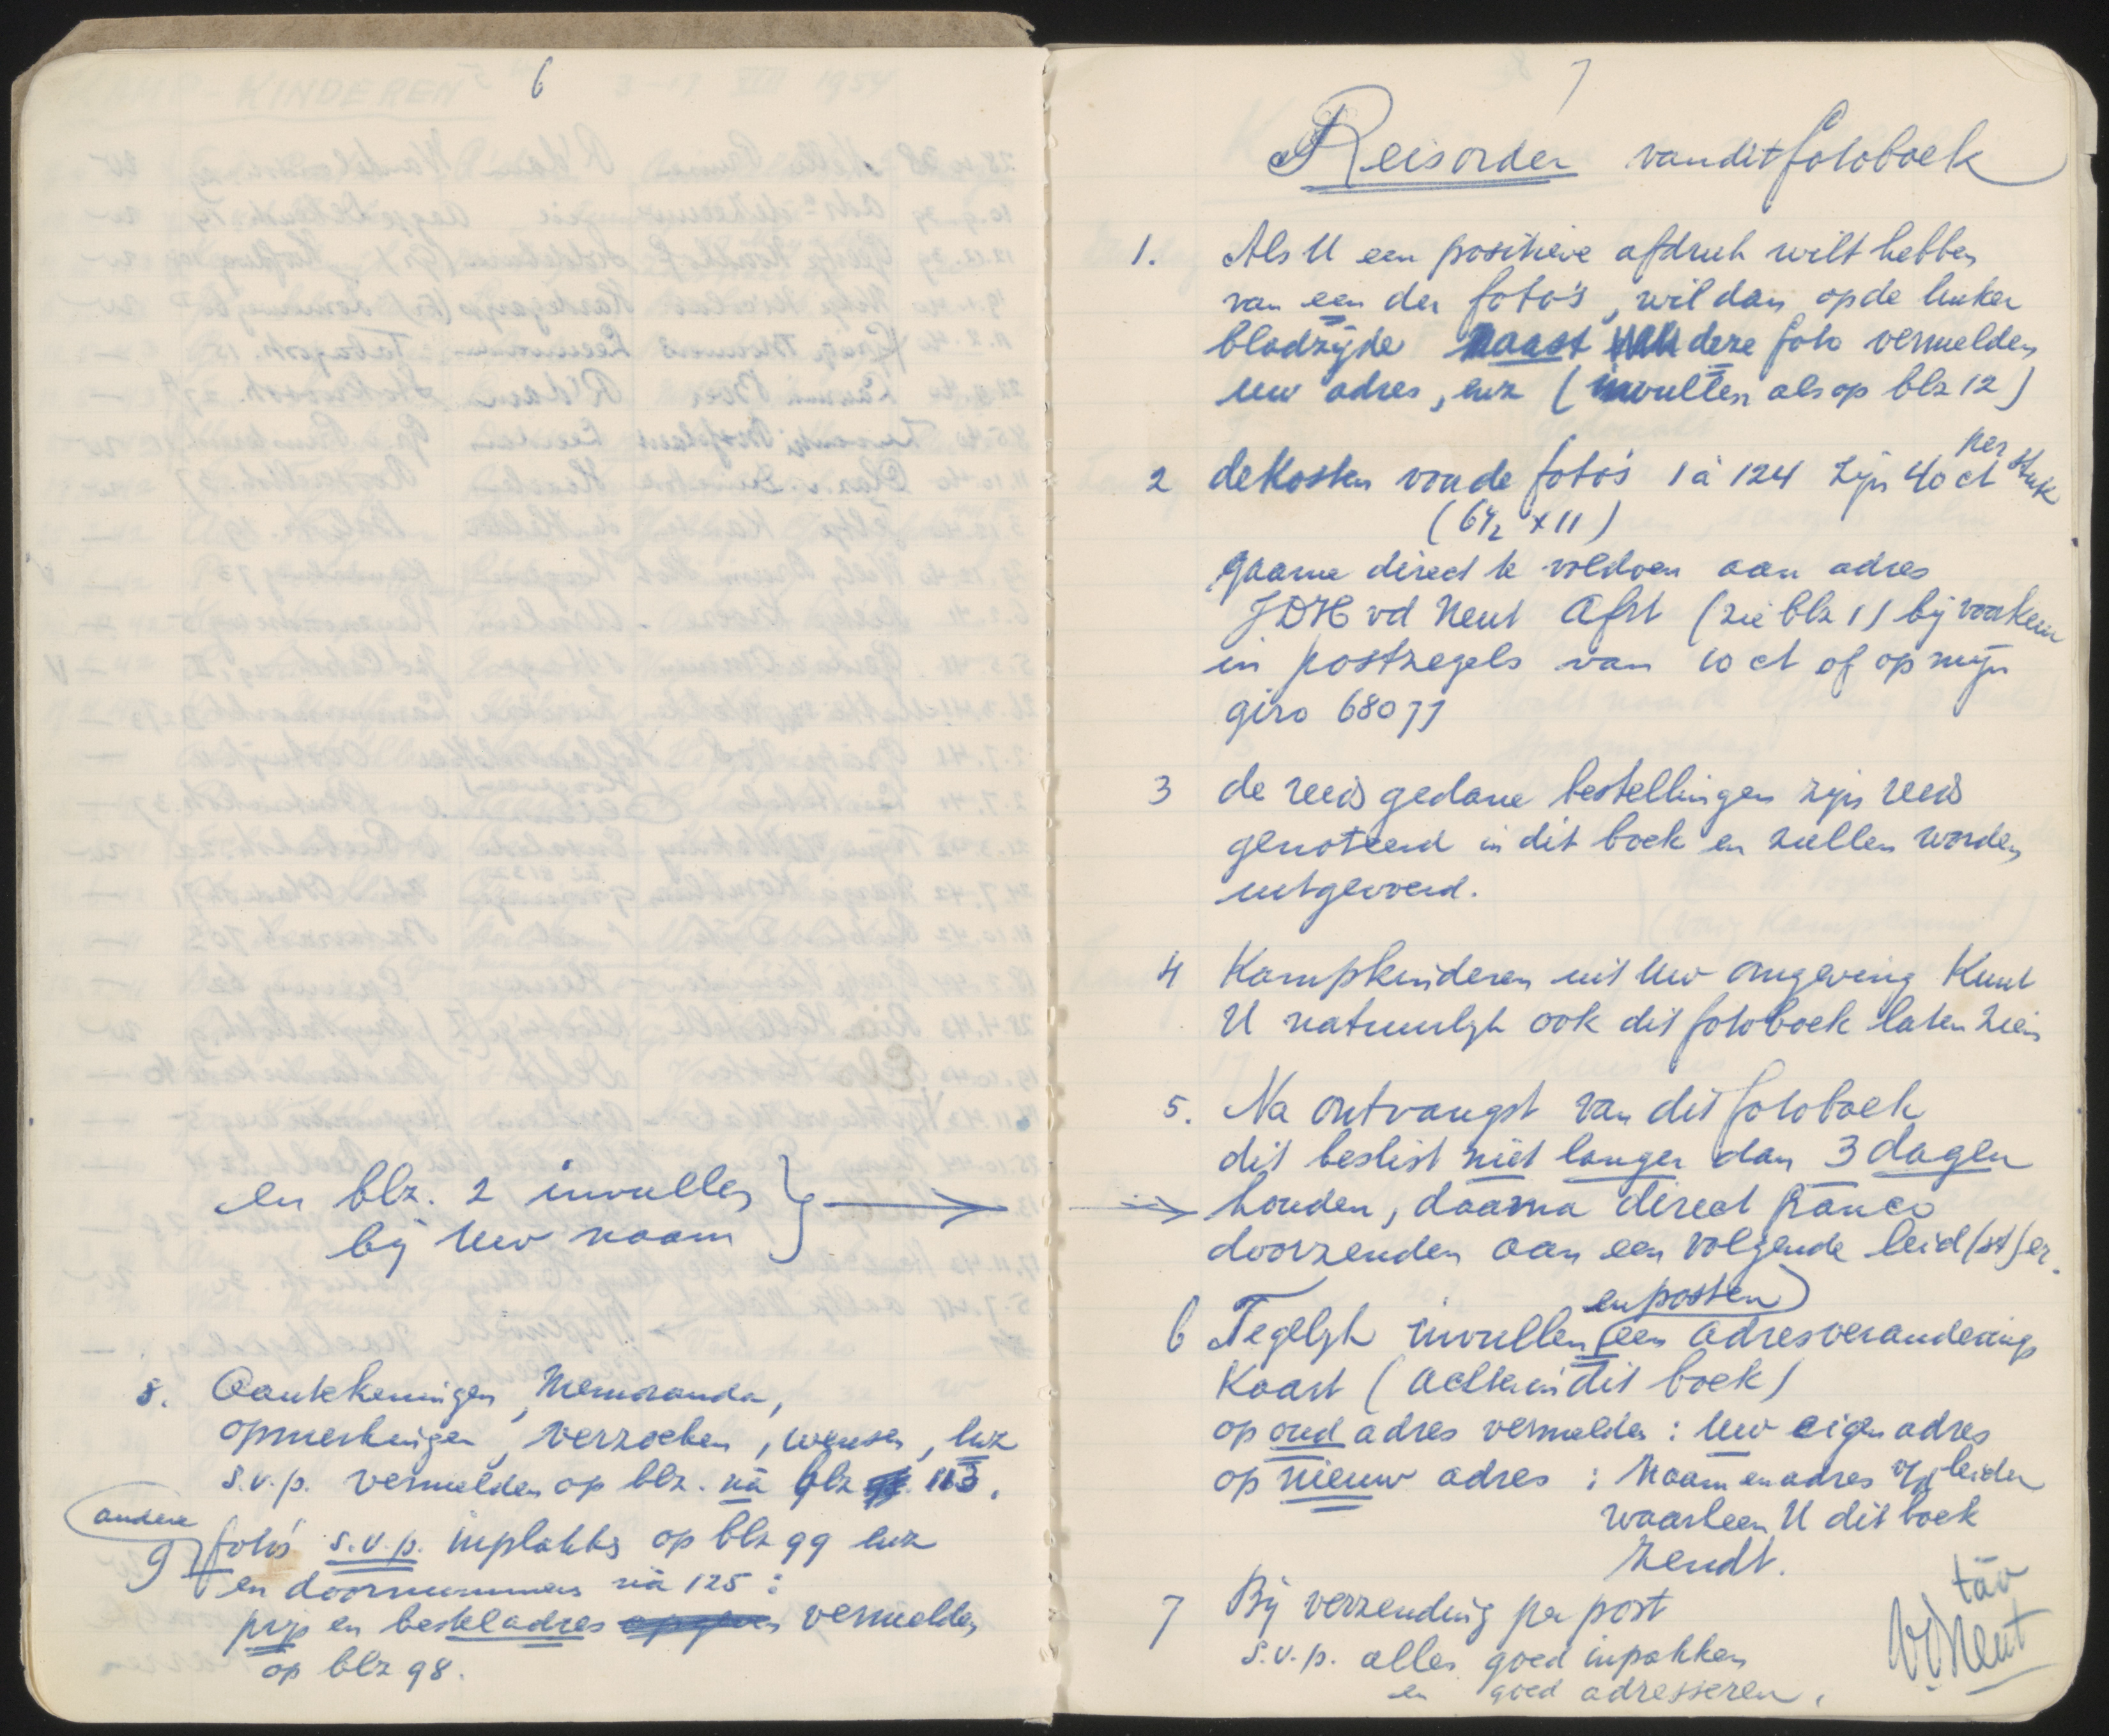 6
en blz. 2 invullen
bij Uw naam
8. Aantekeningen, Memoranda,
opmerkingen, verzoeken, wensen, enz
s.v.p. vermelden op blz. nà blz 113.
andere
9 foto's s.v.p. inplakken op blz 99 enz
en doornummeren nà 125:
prijs en besteladres opgeven vermelden
op blz 98.
7
Reisorder van dit fotoboek
1. Als U een positieve afdruk wilt hebben
van een der foto's, wil dan op de linker
bladzijde naast deze foto vermelden
uw adres, enz (invullen als op blz 12)
2 de Kosten van de foto's 1 à 124 zijn 40 ct per stuk
(6½ x 11)
gaarne direct te voldoen aan adres
JDH vd Neut Afrt (zie blz 1) bij voorkeur
in postzegels van 10 ct of op mijn
giro 68077
3 de reeds gedane bestellingen zijn reeds
genoteerd in dit boek en zullen worden
uitgevoerd.
4 Kampkinderen uit Uw omgeving Kunt
U natuurlijk ook dit fotoboek laten zien
5. Na ontvangst van dit fotoboek
dit beslist niet langer dan 3 dagen
houden, daarna direct franco
doorzenden aan een volgende leid(st)er.
en posten
6 Tegelijk invullen een adresveranderings
Kaart (achterin dit boek)
op oud adres vermelden: Uw eigen adres
op nieuw adres: Naam en adres v/d leider
waarheen U dit boek
zendt.
7 Bij verzending per post
s.v.p. alles goed inpakken
en goed adresseren.
táv
vdNeut